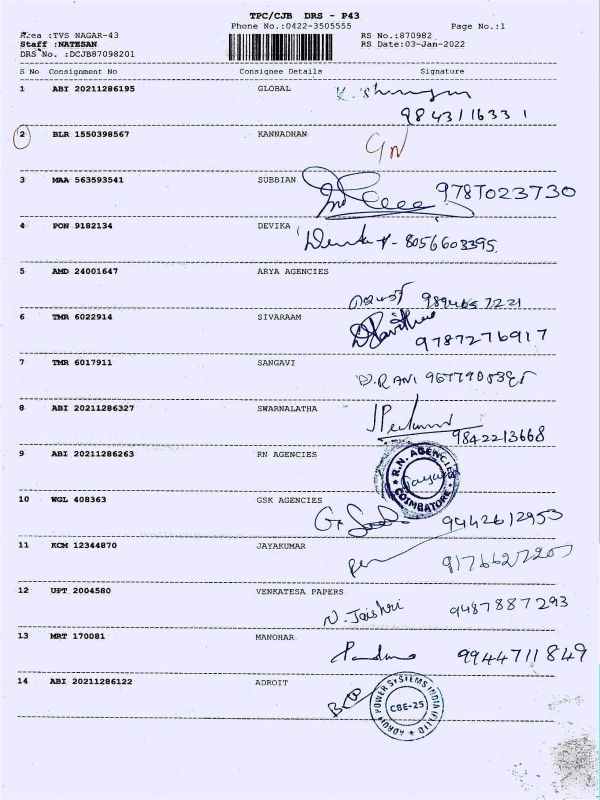 TPC/CJB DRS - P43
Phone No.:0422-3505555 Page No.:1
Area :TVS NAGAR-43 RS No.:870982
Staff :NATESAN RS Date:03-Jan-2022
DRS No. :DCJB87098201
S No Consignment No Consignee Details Signature
1 ABI 20211286195 GLOBAL
98431 16331
2 BLR 1550398567 KANNADHAN
3 MAA 563593541 SUBBIAN 9787023730
4 PON 9182134 DEVIKA
8056603395
5 AMD 24001647 ARYA AGENCIES
6 TMR 6022914 SIVARAAM
9787276917
7 TMR 6017911 SANGAVI
D.RANI
8 ABI 20211286327 SWARNALATHA
9842213668
9 ABI 20211286263 RN AGENCIES R.N. AGENCIES COIMBATORE
10 WGL 408363 GSK AGENCIES
9442612953
11 KCM 12344870 JAYAKUMAR
12 UPT 2004580 VENKATESA PAPERS
N. Jaishri 9487887293
13 MRT 170081 MANOHAR
9944711849
14 ABI 20211286122 ADROIT
ADROIT POWER SYSTEMS INDIA (P) LTD CBE-25